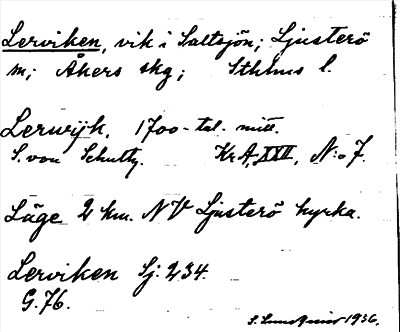 Lerviken, vik i Saltsjön; Ljusterö
m; Åkers skg; Sthlms l.
Lerwijk, 1700-tal. mitt.
S. von Schultz. KrA, XXII, N:o 7.
Läge 2 km. NV Ljusterö kyrka.
Lerviken Sj. 234.
G. 76.
S. 1936.